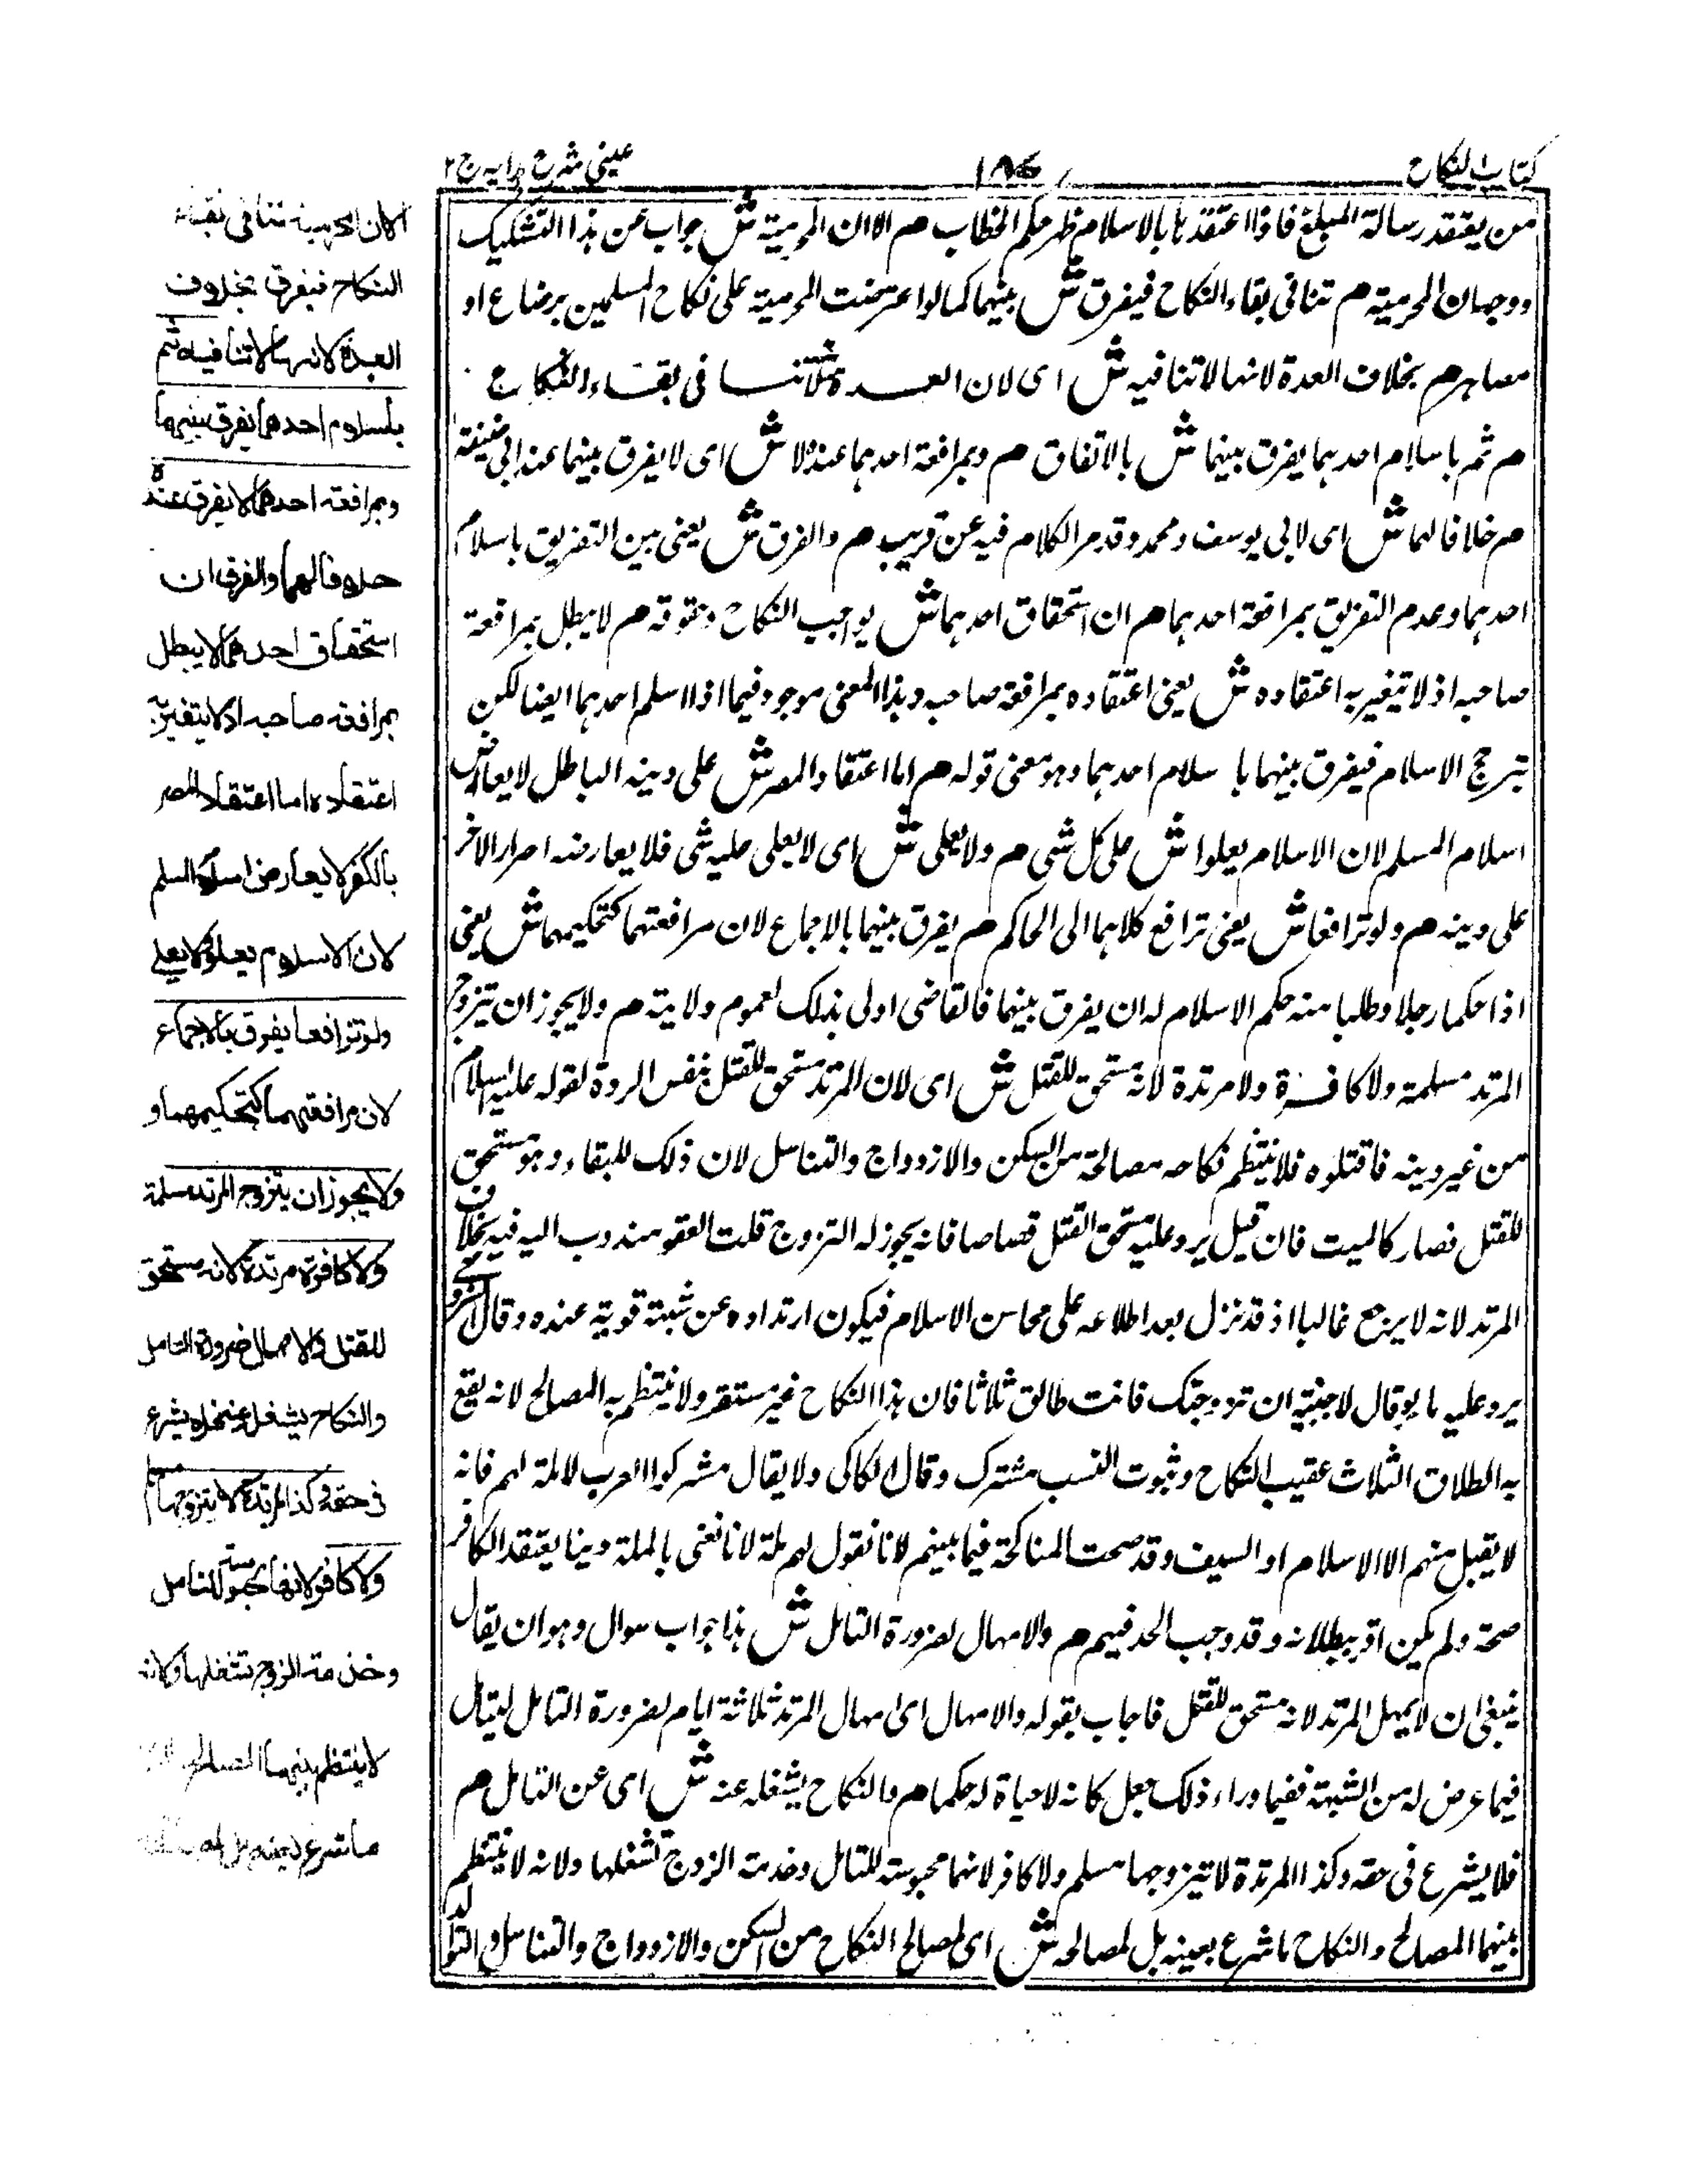 كتاب النكاح
١٨٤
عينى شرح هدايه ج ٢
من يعتقد رسالة المبلغ فاذا اعتقدها بالاسلام ظهر حكم الخطاب هم الا ان المحرمية ش جواب عن هذا التشكيك
ووجهان المحرمية هم تنافى بقاء النكاح فيفرق ش بينهما كما لو اعترضت المحرمية على نكاح المسلمين برضاع او
مصاهر هم بخلاف العدة لانها لا تنافيه ش اى لان العدة لا تنافى بقاء النكاح
هم ثم باسلام احدهما يفرق بينهما ش بالاتفاق هم وبمرافعة احدهما عنده لا ش اى لا يفرق بينهما عند ابى حنيفة
هم خلافا لهما ش اى لابى يوسف ومحمد وقد مر الكلام فيه عن قريب هم والفرق ش يعنى بين التفريق باسلام
احدهما وعدم التفريق بمرافعة احدهما هم ان استحقاق احدهما ش بواجب النكاح وحقوقه هم لا يبطل بمرافعة
صاحبه اذ لا يتغير به اعتقاده ش يعنى اعتقاده بمرافعة صاحبه وهذا المعنى موجود فيما اذا اسلم احدهما ايضا لكن
ترجح الاسلام فيفرق بينهما باسلام احدهما وهو معنى قوله هم اما اعتقاد المصر ش على دينه الباطل لا يعارض
اسلام المسلم لان الاسلام يعلوا ش على كل شى هم ولا يعلى ش اى لا يعلى عليه شى فلا يعارضه اصرار الاخر
على دينه هم ولو ترافعا ش يعنى ترافع كلاهما الى الحاكم هم يفرق بينهما بالاجماع لان مرافعتهما كتحكيمهما ش يعنى
اذا حكما رجلا وطلبا منه حكم الاسلام له ان يفرق بينهما فالقاضى اولى بذلك لعموم ولايته هم ولا يجوز ان يتزوج
المرتد مسلمة ولا كافرة ولا مرتدة لانه مستحق للقتل ش اى لان المرتد مستحق للقتل بنفس الردة لقوله عليه السلام
من غير دينه فاقتلوه فلا ينتظم نكاحه مصالحه من السكن والازدواج والتناسل لان ذلك للبقاء وهو مستحق
للقتل فصار كالميت فان قيل يرد عليه مستحق القتل قصاصا فانه يجوز له التزوج قلت العفو مندوب اليه فيه بخلاف
المرتد لانه لا يرجع غالبا اذ قد نزل بعد اطلاعه على محاسن الاسلام فيكون ارتداده عن شبهة قوية عنده وقال
يرد عليه ما لو قال لاجنبية ان تزوجتك فانت طالق ثلاثا فان هذا النكاح غير مستقر ولا ينتظم به المصالح لانه يقع
به الطلاق الثلاث عقيب النكاح وثبوت النسب مشترك وقال الكاكى ولا يقال مشركوا العرب لا ملة لهم فانه
لا يقبل منهم الا الاسلام او السيف وقد صحت المناكحة فيما بينهم لانا نقول لهم ملة لانا نعنى بالملة دينا يعتقد الكافر
صحته ولم يكن اقر ببطلانه وقد وجب الحد فيهم هم والامهال لضرورة التامل ش هذا جواب سوال وهو ان يقال
ينبغى ان لا يمهل المرتد لانه مستحق للقتل فاجاب بقوله والامهال اى امهال المرتد ثلاثة ايام لضرورة التامل ليتامل
فيما عرض له من الشبهة ففيما وراء ذلك جعل كانه لا حياة له حكما هم والنكاح يشغله عنه ش اى عن التامل هم
فلا يشرع فى حقه وكذا المرتدة لا يتزوجها مسلم ولا كافر لانها محبوسة للتامل وخدمة الزوج تشغلها ولانه لا ينتظم
بينهما المصالح والنكاح ما شرع بعينه بل لمصالحه ش اى لمصالح النكاح من السكن والازدواج والتناسل والتوالد
الا ان المحرمية تنافى بقاء
النكاح فيفرق بخلاف
العدة لانها لا تنافيه ثم
باسلام احدهما يفرق بينهما
وبمرافعة احدهما لا يفرق عنده
خلافا لهما والفرق ان
استحقاق احدهما لا يبطل
بمرافعة صاحبه اذ لا يتغير به
اعتقاده اما اعتقاد المصر
بالكفر لا يعارض اسلام المسلم
لان الاسلام يعلو ولا يعلى
ولو ترافعا يفرق بالاجماع
لان مرافعتهما كتحكيمهما و
ولا يجوز ان يتزوج المرتد مسلمة
ولا كافرة مرتدة لانه مستحق
للقتل والامهال ضرورة التامل
والنكاح يشغله عنه فلا يشرع
فى حقه وكذا المرتدة لا يتزوجها مسلم
ولا كافر لانها محبوسة للتامل
وخدمة الزوج تشغلها ولانه
لا ينتظم بينهما المصالح
ما شرع لعينه بل